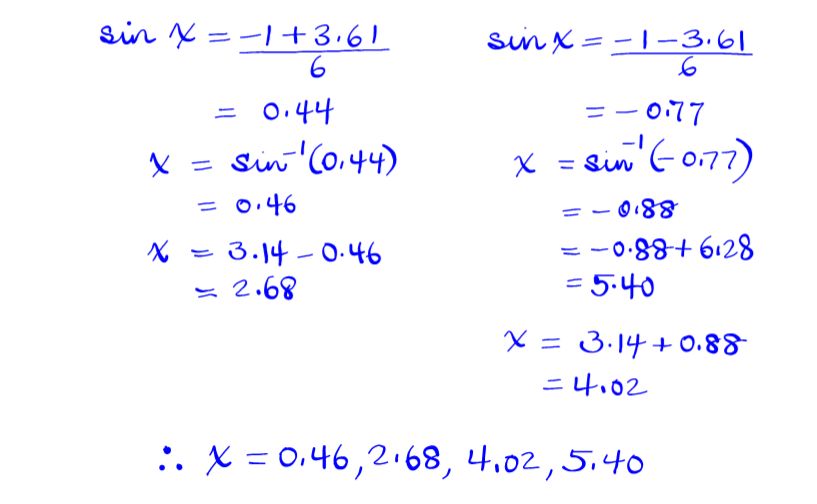 sin x = (-1 + 3.61)/6
= 0.44
x = sin⁻¹(0.44)
= 0.46
x = 3.14 - 0.46
= 2.68
sin x = (-1 - 3.61)/6
= -0.77
x = sin⁻¹(-0.77)
= -0.88
= -0.88 + 6.28
= 5.40
x = 3.14 + 0.88
= 4.02
∴ x = 0.46, 2.68, 4.02, 5.40